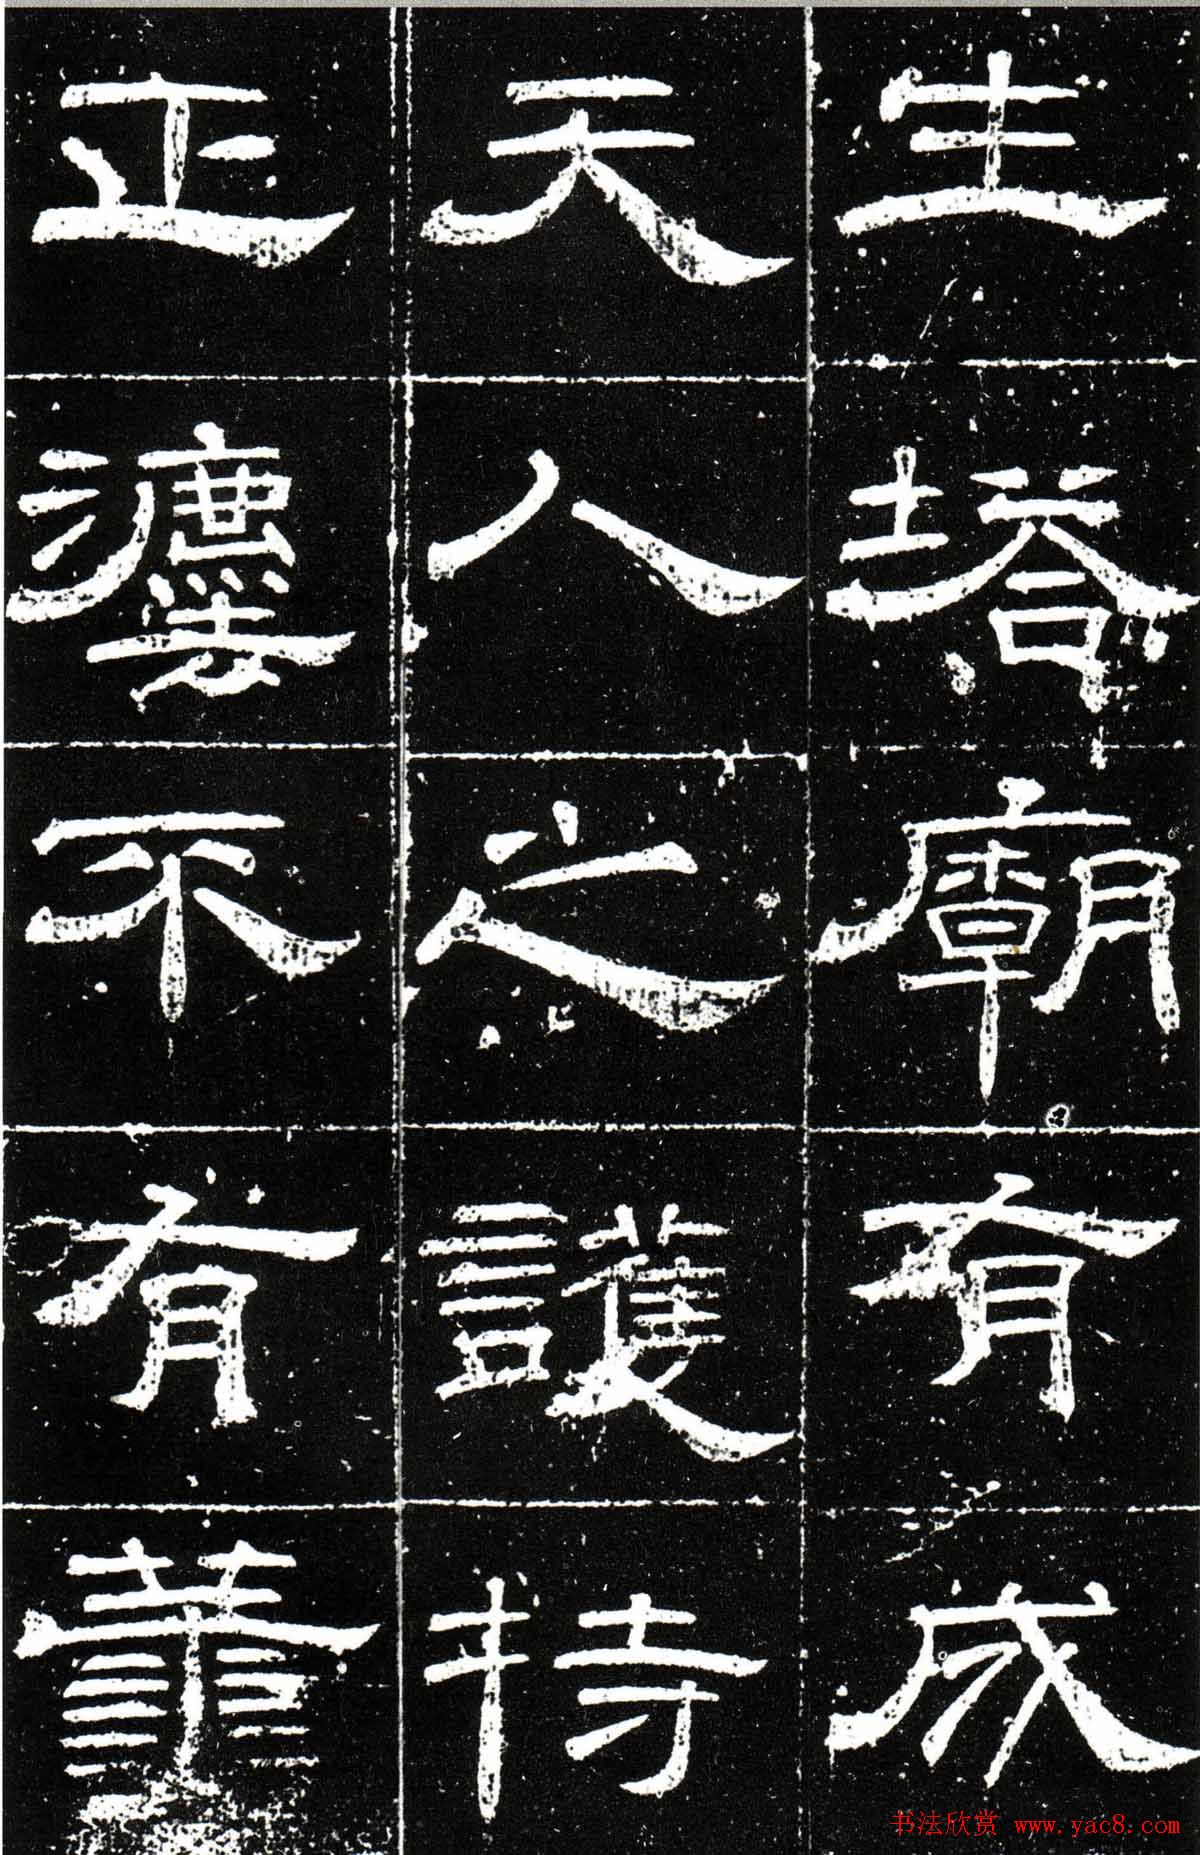 生塔廟有成
天人之護持
正灋不有譱
书法欣赏 www.yac8.com